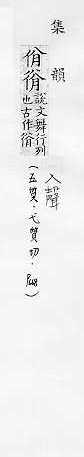 集韻 入聲
佾 說文舞行列也古作
(五質·弋質切·)